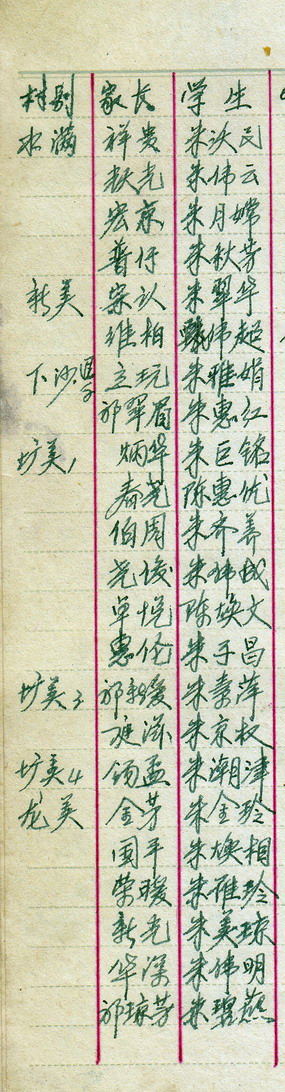 村别 家长 学生
水满 祥贵 朱沃民
秋光 朱伟云
宏京 朱月嫦
普仔 朱秋芳
新美 宗认 朱翠华
维相 伟超
下沙 立玩 朱雅娟
祁翠眉 朱惠红
圹美1 炳华 朱巨铭
春尧 陈惠优
伯周 朱齐养
尧俊 朱伟城
卓悦 陈焕文
惠伦 朱于昌
圹美3 祁新爱 朱素萍
朱京权
圹美4 锡孟 朱潮津
龙美 金芽 朱金玲
国平 朱焕相
荣瑷 朱雅玲
新光 朱美琼
华深 朱伟明
祁琼芳 朱碧燕